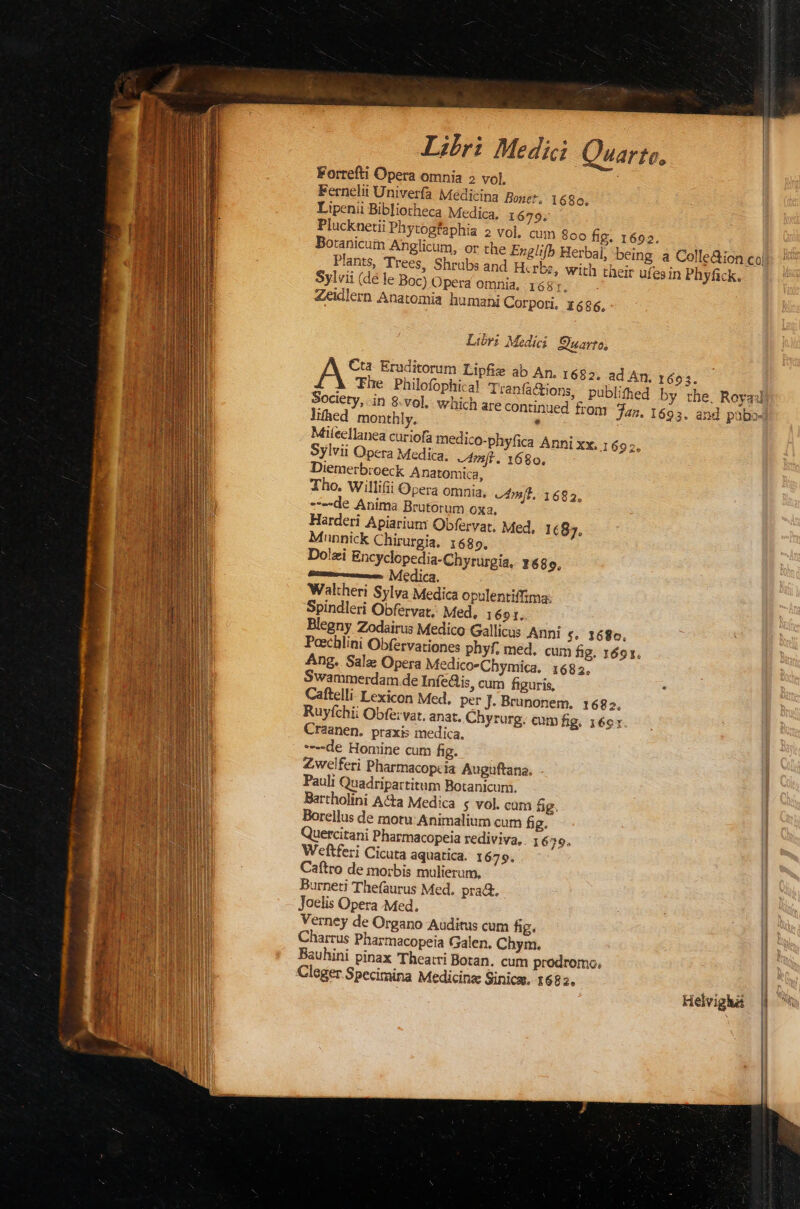 Libri Medici Quarto.
Forreſti Opera omnia 2 vol.
Fernelii Univerſa Medicina Bonet. 1680.
Lipenii Bibliotheca Medica. 1679.
Plucknetii Phytogſaphia 2 vol. cum 800 fig. 1692.
Botanicum Anglicum, or the Engliſh Herbal, being a Collection
Plants, Trees, Shrubs and Herbs, with their uſes in Phyſick.
Sylvii (de le Boc) Opera omnia, 1681.
Zeidlern Anatomia humani Corpori. 1686.
Libri Medici Quarto.
ACta Eruditorum Lipſiæ ab An. 1682. ad An. 1693.
The Philoſophical Tranſactions, publiſhed by the Royal
Society, in 8 vol. which are continued from Jan. 1693. and pub-
liſhed monthly.
Miſcellanea curioſa medico-phyſica Anni xx. 1692.
Sylvii Opera Medica. Amſt. 1680.
Diemerbroeck Anatomica,
Tho. Williſii Opera omnia. Amſt. 1682.
----de Anima Brutorum oxa.
Harderi Apiarium Obſervat. Med. 1687.
Munnick Chirurgia. 1689.
Dolæi Encyclopedia-Chyrurgia. 1689.
———— Medica.
Waltheri Sylva Medica opulentiſſima.
Spindleri Obſervat. Med. 1691.
Blegny Zodairus Medico Gallicus Anni 5. 1680.
Pœchlini Obſervationes phyſ. med. cum fig. 1691.
Ang. Salæ Opera Medico-Chymica. 1682.
Swammerdam de Inſectis, cum figuris.
Caſtelli Lexicon Med. per J. Brunonem. 1682.
Ruyſchii Obſervat. anat. Chyrurg. cum fig. 1691.
Craanen. praxis medica.
----de Homine cum fig.
Zwelferi Pharmacopcia Auguſtana.
Pauli Quadripartitum Botanicum.
Bartholini Acta Medica 5 vol. cum fig.
Borellus de motu Animalium cum fig.
Quercitani Pharmacopeia rediviva. 1679.
Weſtferi Cicuta aquatica. 1679.
Caſtro de morbis mulierum.
Burneti Theſaurus Med. pract.
Joelis Opera Med.
Verney de Organo Auditus cum fig.
Charrus Pharmacopeia Galen. Chym.
Bauhini pinax Theatri Botan. cum prodromo.
Cleger Specimina Medicinæ Sinicæ. 1682.
Helvighii